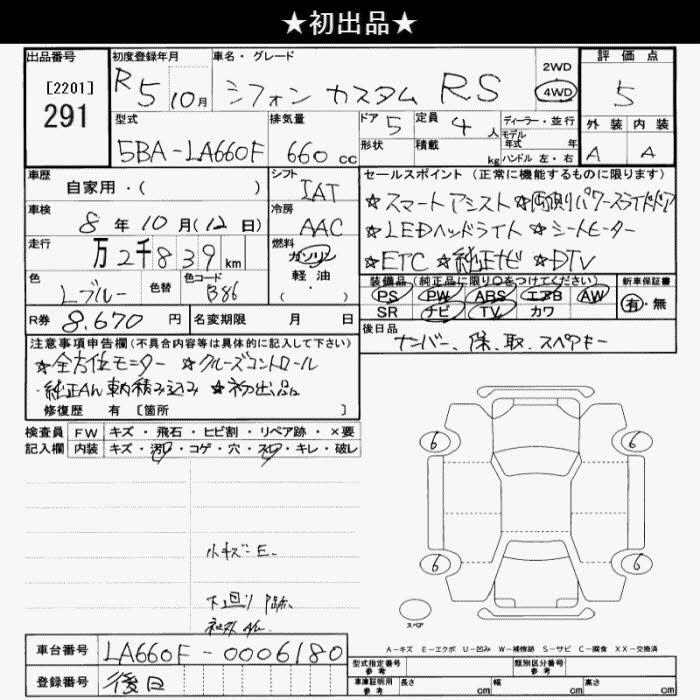 ★初出品★
出品番号
[2201]
291
初度登録年月
R5 10月
車名・グレード
シフォン カスタム RS
2WD
4WD
評価点
5
外装 内装
A A
型式
5BA-LA660F
排気量
660 cc
ドア 5
定員 4 人
形状
積載 kg
ディーラー・並行
モデル
年式 年
ハンドル 左・右
車歴
自家用・( )
シフト
IAT
車検
8年10月(12日)
冷房
AAC
走行
万2千839km
燃料
ガソリン
軽・油
( ・ )
色
Lブルー
色替
色コード
B86
R券 8.670 円
名変期限 月 日
セールスポイント(正常に機能するものに限ります)
☆スマートアシスト☆両側パワースライドドア
☆LEDヘッドライト☆シートヒーター
☆ETC ☆純正ナビ ☆DTV
装備品(純正品に限り○をつけてください)
PS PW ABS エアB AW
SR ナビ TV カワ
新車保証書
有・無
後日品
ナンバー、保、取、スペアキー
注意事項申告欄(不具合内容等は具体的に記入して下さい)
☆全方位モニター ☆クルーズコントロール
・純正AW車輌積み込み ☆初出品
修復歴 有 [箇所 ]
検査員
記入欄
FW キズ・飛石・ヒビ割・リペア跡・×要
内装 キズ・汚・コゲ・穴・スレ・キレ・破レ
小キズ E.
下回り
6 6
6 6
スペア
A-キズ E-エクボ U-凹み W-補修跡 S-サビ C-腐食 XX-交換済
車台番号 LA660F-0006180
登録番号 後日
型式指定番号
参考
類別区分番号
参考
車庫証明用
参考
長さ cm 幅 cm 高さ cm